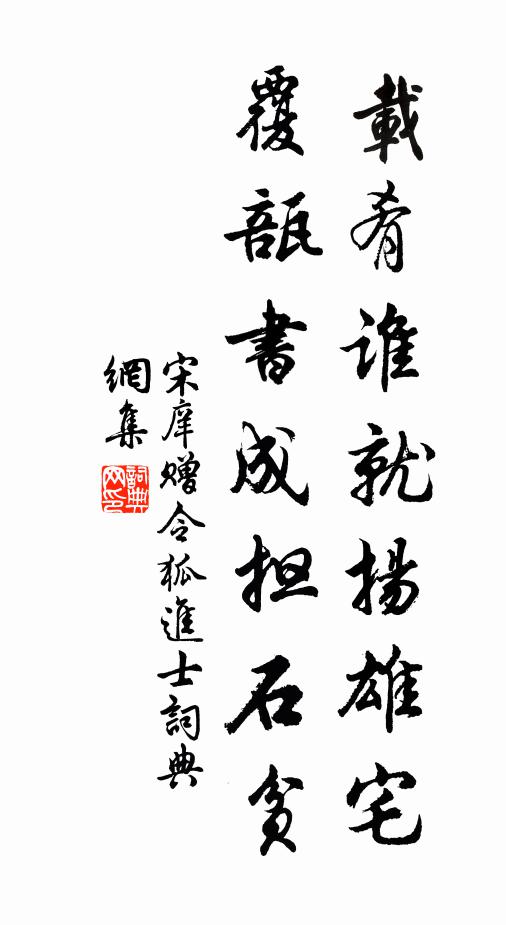 載肴誰就揚雄宅
覆瓿書成担石貧
宋庠贈令狐進士詞典
網集
詞典網印